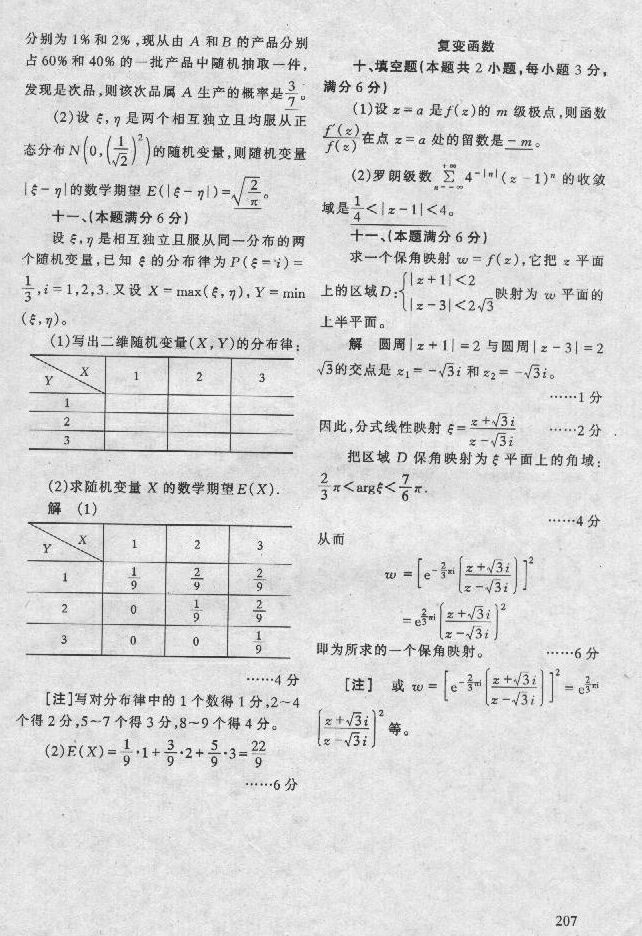 分别为1%和2%,现从由 A 和 B 的产品分别
占60%和40%的一批产品中随机抽取一件,
发现是次品,则该次品属 A 生产的概率是 3/7。
(2)设 ξ,η 是两个相互独立且均服从正
态分布 N(0,(1/√2)²)的随机变量,则随机变量
|ξ-η|的数学期望 E(|ξ-η|)=√(2/π)。
十一、(本题满分6分)
设 ξ,η 是相互独立且服从同一分布的两
个随机变量,已知 ξ 的分布律为 P(ξ=i)=
1/3,i=1,2,3.又设 X=max(ξ,η),Y=min
(ξ,η)。
(1)写出二维随机变量(X,Y)的分布律;
Y X 1 2 3
1
2
3
(2)求随机变量 X 的数学期望E(X).
解 (1)
Y X 1 2 3
1 1/9 2/9 2/9
2 0 1/9 2/9
3 0 0 1/9
……4分
[注]写对分布律中的1个数得1分,2~4
个得2分,5~7个得3分,8~9个得4分。
(2)E(X)=1/9·1+3/9·2+5/9·3=22/9
……6分
复变函数
十、填空题(本题共2小题,每小题3分,
满分6分)
(1)设 z=a 是f(z)的 m 级极点,则函数
f′(z)/f(z)在点 z=a 处的留数是-m。
(2)罗朗级数 Σ_{n=-∞}^{+∞} 4^{-|n|}(z-1)ⁿ 的收敛
域是1/4<|z-1|<4。
十一、(本题满分6分)
求一个保角映射 w=f(z),它把 z 平面
上的区域D:{|z+1|<2 |z-3|<2√3映射为 w 平面的
上半平面。
解 圆周|z+1|=2与圆周|z-3|=2
√3的交点是 z₁=-√3i 和z₂=-√3i。
……1分
因此,分式线性映射 ξ=(z+√3i)/(z-√3i) ……2分
把区域 D 保角映射为 ξ 平面上的角域:
2/3π<argξ<7/6π.
……4分
从而
w=[e^{-2/3πi}((z+√3i)/(z-√3i))]²
=e^{2/3πi}((z+√3i)/(z-√3i))²
即为所求的一个保角映射。 ……6分
[注] 或 w=[e^{-2/3πi}((z+√3i)/(z-√3i))]²=e^{2/3πi}
((z+√3i)/(z-√3i))²等。
207